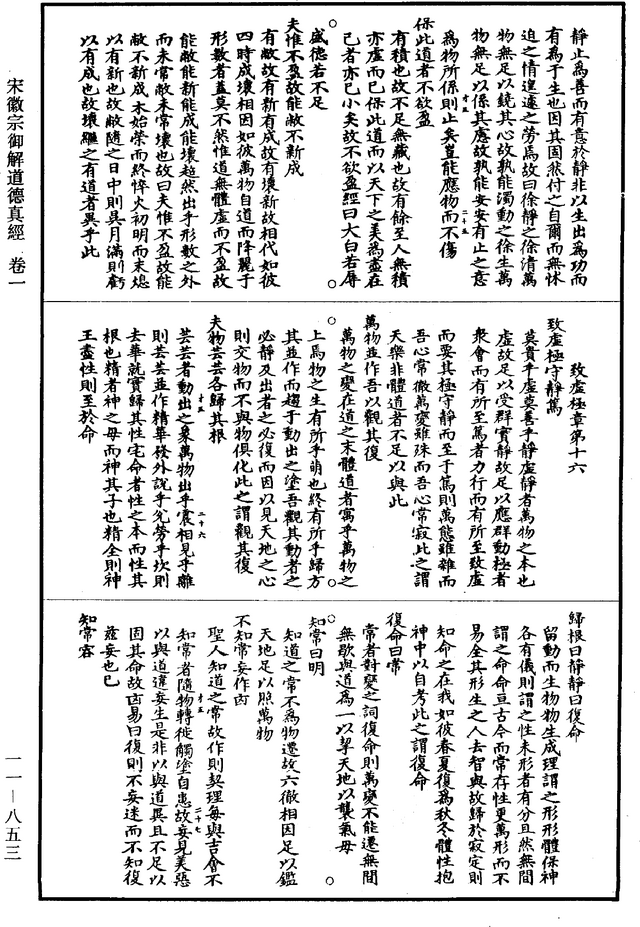 靜止為善而有意於靜非以生出為功而
有為于生也因其固然付之自爾而無怵
迫之情遑遽之勞焉故曰徐靜之徐清萬
物無足以鐃其心故孰能濁動之徐生萬
物無足以係其慮故孰能安安有止之意
為物所係則止矣豈能應物而不傷
保此道者不欲盈
有積也故不足無藏也故有餘至人無積
亦虛而已保此道而以天下之美為盡在
己者亦已小矣故不欲盈經曰大白若辱
盛德若不足
夫惟不盈故能敝不新成
有敝故有新有成故有壞新故相代如彼
四時成壞相因如彼萬物自道而降麗于
形數者蓋莫不然惟道無體虛而不盈故
能敝能新能成能壞超然出乎形數之外
而未常敝未常壞也故曰夫惟不盈故能
敝不新成木始榮而終悴火初明而末熄
以有新也故敝隨之日中則昃月滿則虧
以有成也故壞繼之有道者異乎此
致虛極章第十六
致虛極守靜篤
莫貴乎虛莫善乎靜虛靜者萬物之本也
虛故足以受群實靜故足以應群動極者
衆會而有所至篤者力行而有所至致虛
而要其極守靜而至于篤則萬態雖雜而
吾心常徹萬變雖殊而吾心常寂此之謂
天樂非體道者不足以與此
萬物並作吾以觀其復
萬物之變在道之末體道者寓乎萬物之
上焉物之生有所乎萌也終有所乎歸方
其並作而趨于動出之塗吾觀其動者之
必靜及出者之必復而因以見天地之心
則交物而不與物俱化此之謂觀其復
夫物芸芸各歸其根
芸芸者動出之象萬物出乎震相見乎離
則芸芸並作精華發外說乎兌勞乎坎則
去華就實歸其性宅命者性之本而性其
根也精者神之母而神其子也精全則神
王盡性則至於命
歸根曰靜靜曰復命
留動而生物物生成理謂之形形體保神
各有儀則謂之性未形者有分且然無間
謂之命命亘古今而常存性更萬形而不
易全其形生之人去智與故歸於寂定則
知命之在我如彼春夏復為秋冬體性抱
神中以自考此之謂復命
復命曰常
常者對變之詞復命則萬變不能遷無間
無歇與道為一以挈天地以襲氣母
知常曰明
知道之常不為物遷故六徹相因足以鑑
天地足以照萬物
不知常妄作凶
聖人知道之常故作則契理每與吉會不
知常者隨物轉徙觸塗自患故妄見美惡
以與道違妄生是非以與道異且不足以
固其命故凶易曰復則不妄迷而不知復
茲妄也已
知常容
宋徽宗御解道德真經 卷一
一一—八五三
才五
二十五
才五
二十六
才五
二十七